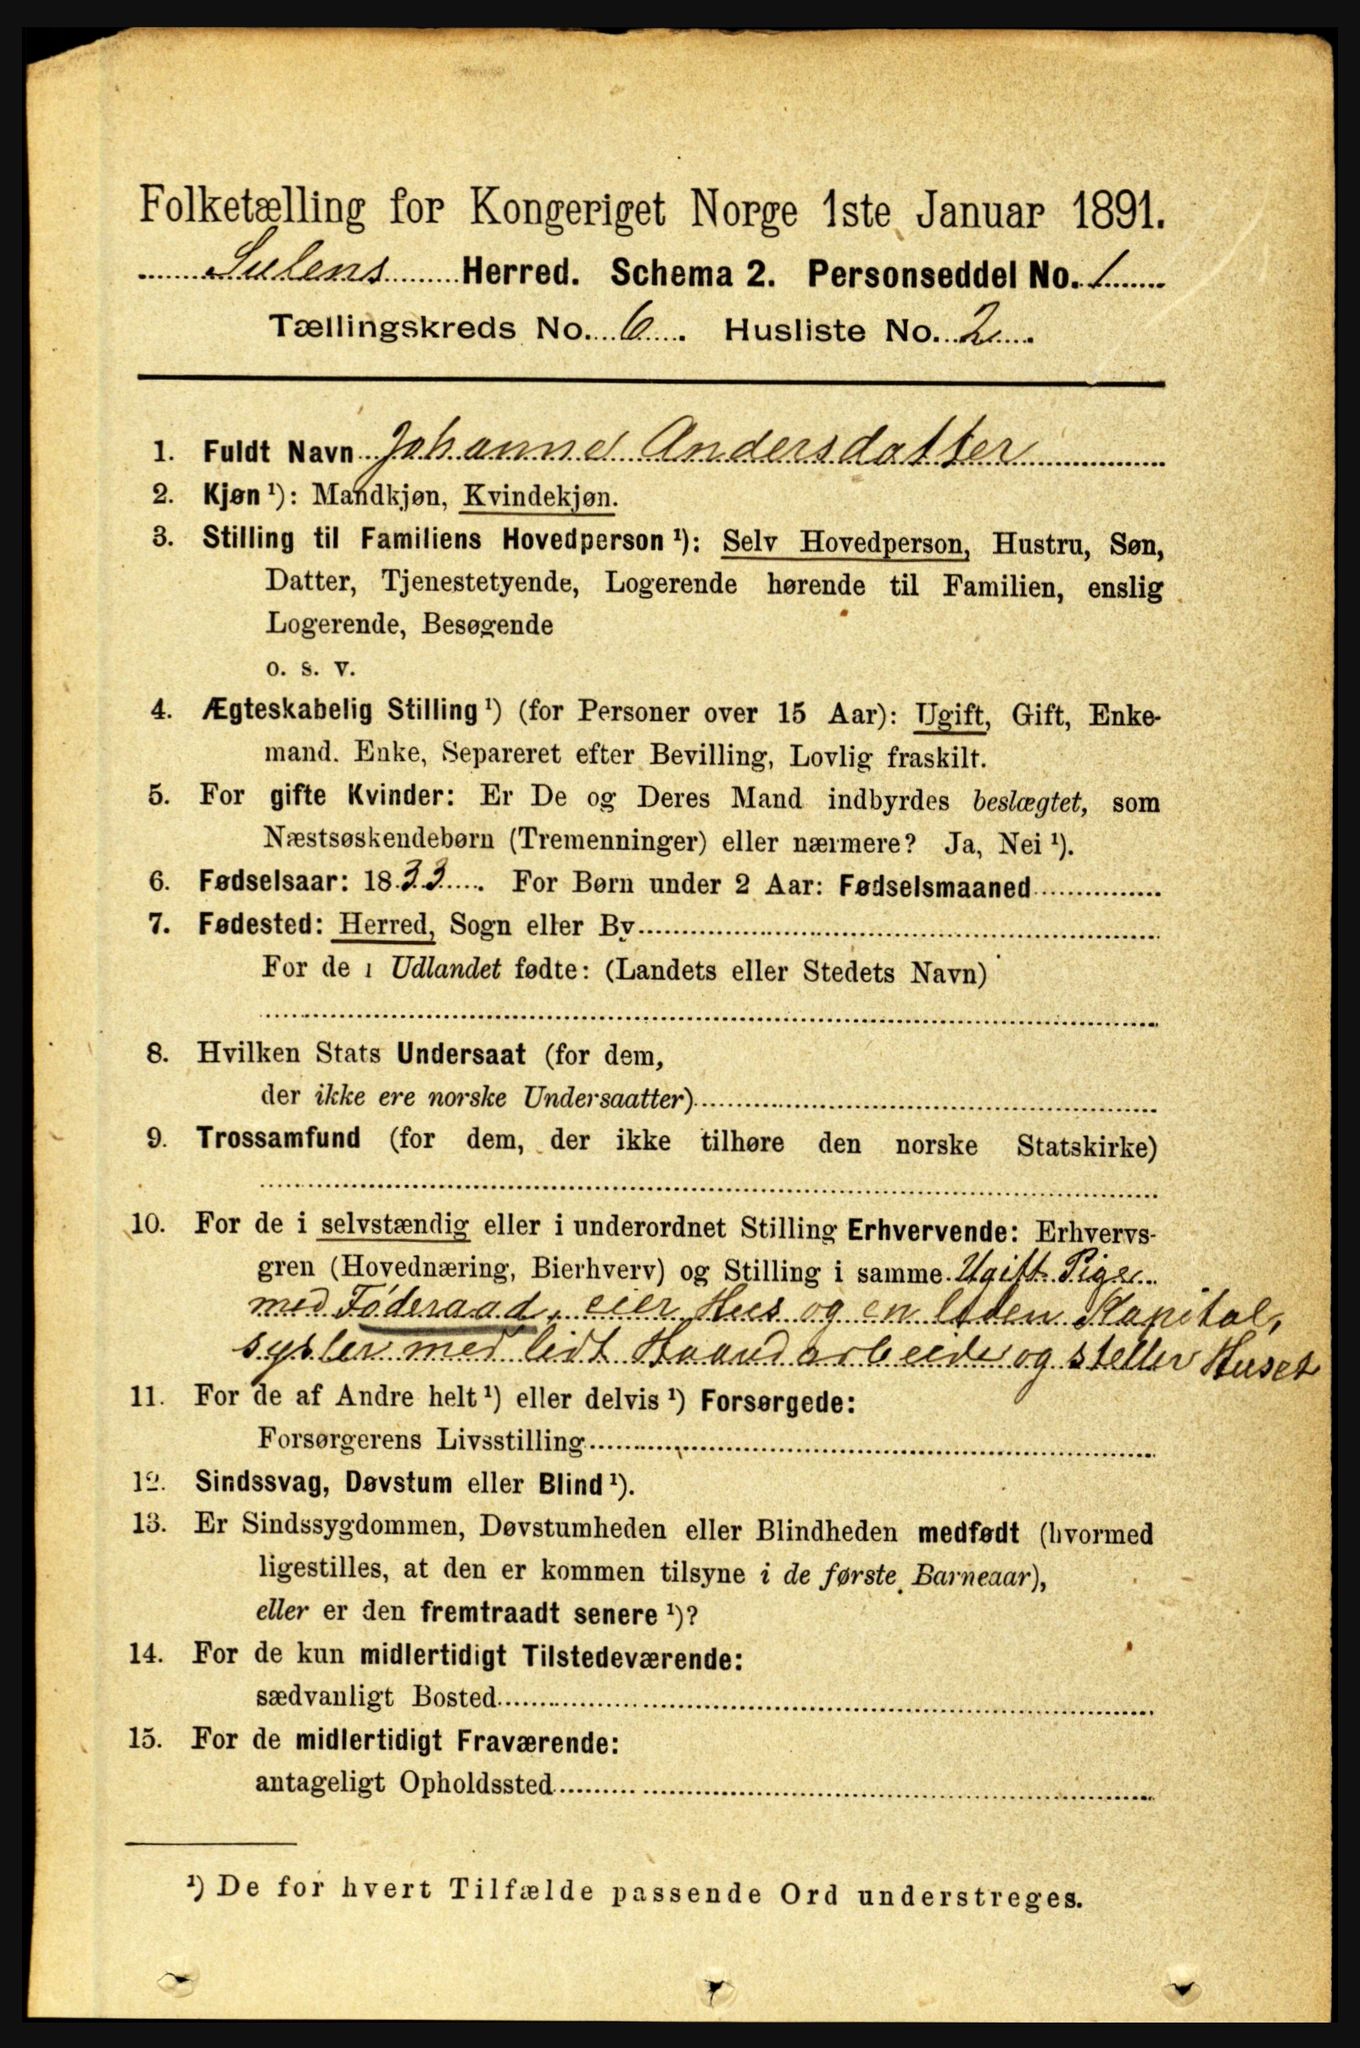 Folketælling for Kongeriget Norge 1ste Januar 1891.
Sulens Herred. Schema 2. Personseddel No. 1
Tællingskreds No. 6. Husliste No. 2.
1. Fuldt Navn Johanne Andersdatter
2. Kjøn ¹): Mandkjøn, Kvindekjøn.
3. Stilling til Familiens Hovedperson ¹): Selv Hovedperson, Hustru, Søn,
Datter, Tjenestetyende, Logerende hørende til Familien, enslig
Logerende, Besøgende
o. s. v.
4. Ægteskabelig Stilling ¹) (for Personer over 15 Aar): Ugift, Gift, Enke-
mand. Enke, Separeret efter Bevilling, Lovlig fraskilt.
5. For gifte Kvinder: Er De og Deres Mand indbyrdes beslægtet, som
Næstsøskendebørn (Tremenninger) eller nærmere? Ja, Nei ¹).
6. Fødselsaar: 1833. For Børn under 2 Aar: Fødselsmaaned
7. Fødested: Herred, Sogn eller By
For de i Udlandet fødte: (Landets eller Stedets Navn)
8. Hvilken Stats Undersaat (for dem,
der ikke ere norske Undersaatter)
9. Trossamfund (for dem, der ikke tilhøre den norske Statskirke)
10. For de i selvstændig eller i underordnet Stilling Erhvervende: Erhvervs-
gren (Hovednæring, Bierhverv) og Stilling i samme Ugift Pige
med Føderaad, eier Hus og en liden Kapital,
sysler med lidt Haandarbeide og steller Huset
11. For de af Andre helt ¹) eller delvis ¹) Forsørgede:
Forsørgerens Livsstilling
12. Sindssvag, Døvstum eller Blind ¹).
13. Er Sindssygdommen, Døvstumheden eller Blindheden medfødt (hvormed
ligestilles, at den er kommen tilsyne i de første Barneaar),
eller er den fremtraadt senere ¹)?
14. For de kun midlertidigt Tilstedeværende:
sædvanligt Bosted
15. For de midlertidigt Fraværende:
antageligt Opholdssted
¹) De for hvert Tilfælde passende Ord understreges.